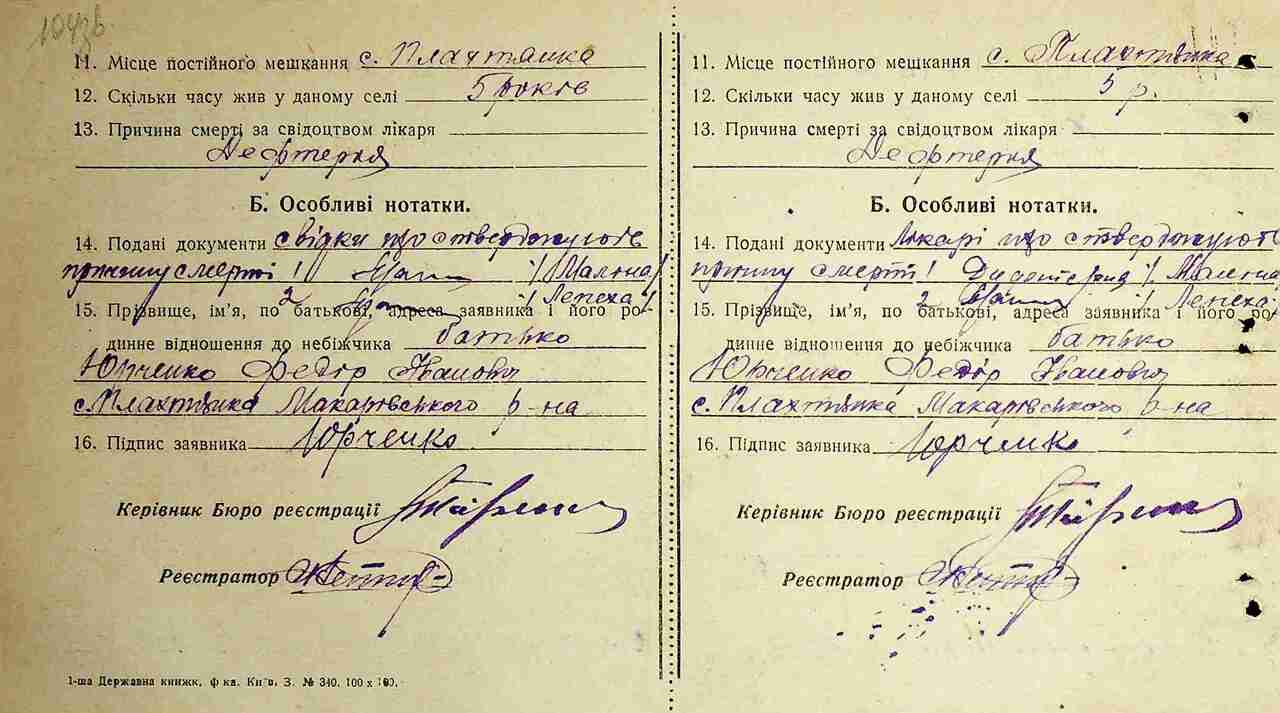 11. Місце постійного мешкання с. Плахтянка
12. Скільки часу жив у даному селі 5 років
13. Причина смерті за свідоцтвом лікаря
Дефтерия
Б. Особливі нотатки.
14. Подані документи свідки що стверджують
причину смерті! /Малюна/
15. Прізвище, ім'я, по батькові, адреса заявника і його ро-
2 /Лепеха/
динне відношення до небіжчика батько
Юрченко Федір Іванович
с. Плахтянка Макарівського р-на
16. Підпис заявника Юрченко
Керівник Бюро реєстрації
Реєстратор
1-ша Державна книжк. ф-ка. Київ. З. № 340. 100 х 100.
11. Місце постійного мешкання с. Плахтянка
12. Скільки часу жив у даному селі 5 р.
13. Причина смерті за свідоцтвом лікаря
Дефтерия
Б. Особливі нотатки.
14. Подані документи Лікарі що стверджують
причину смерті!
15. Прізвище, ім'я, по батькові, адреса заявника і його ро-
2 /Лепеха
динне відношення до небіжчика батько
Юрченко Федір Іванович
с. Плахтянка Макарівського р-на
16. Підпис заявника Юрченко
Керівник Бюро реєстрації
Реєстратор